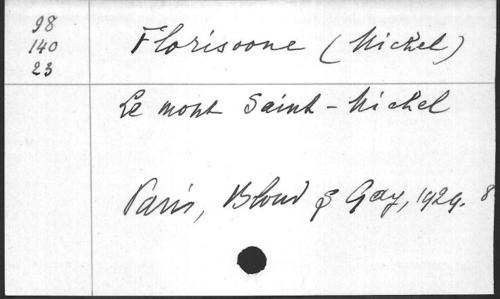 98
140
23
Florisoone (Michel)
Le mont Saint-Michel
Paris, Bloud & Gay, 1929. 8